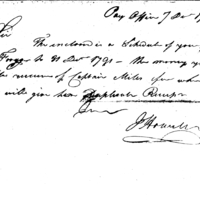 Pay Office 7 Dec 17
Sir
The enclosed is a Schedule of you
to 31 Dec 1791 - the money you
receive of Captain Mills for wh
will give him Duplicate Receipt
J Howell